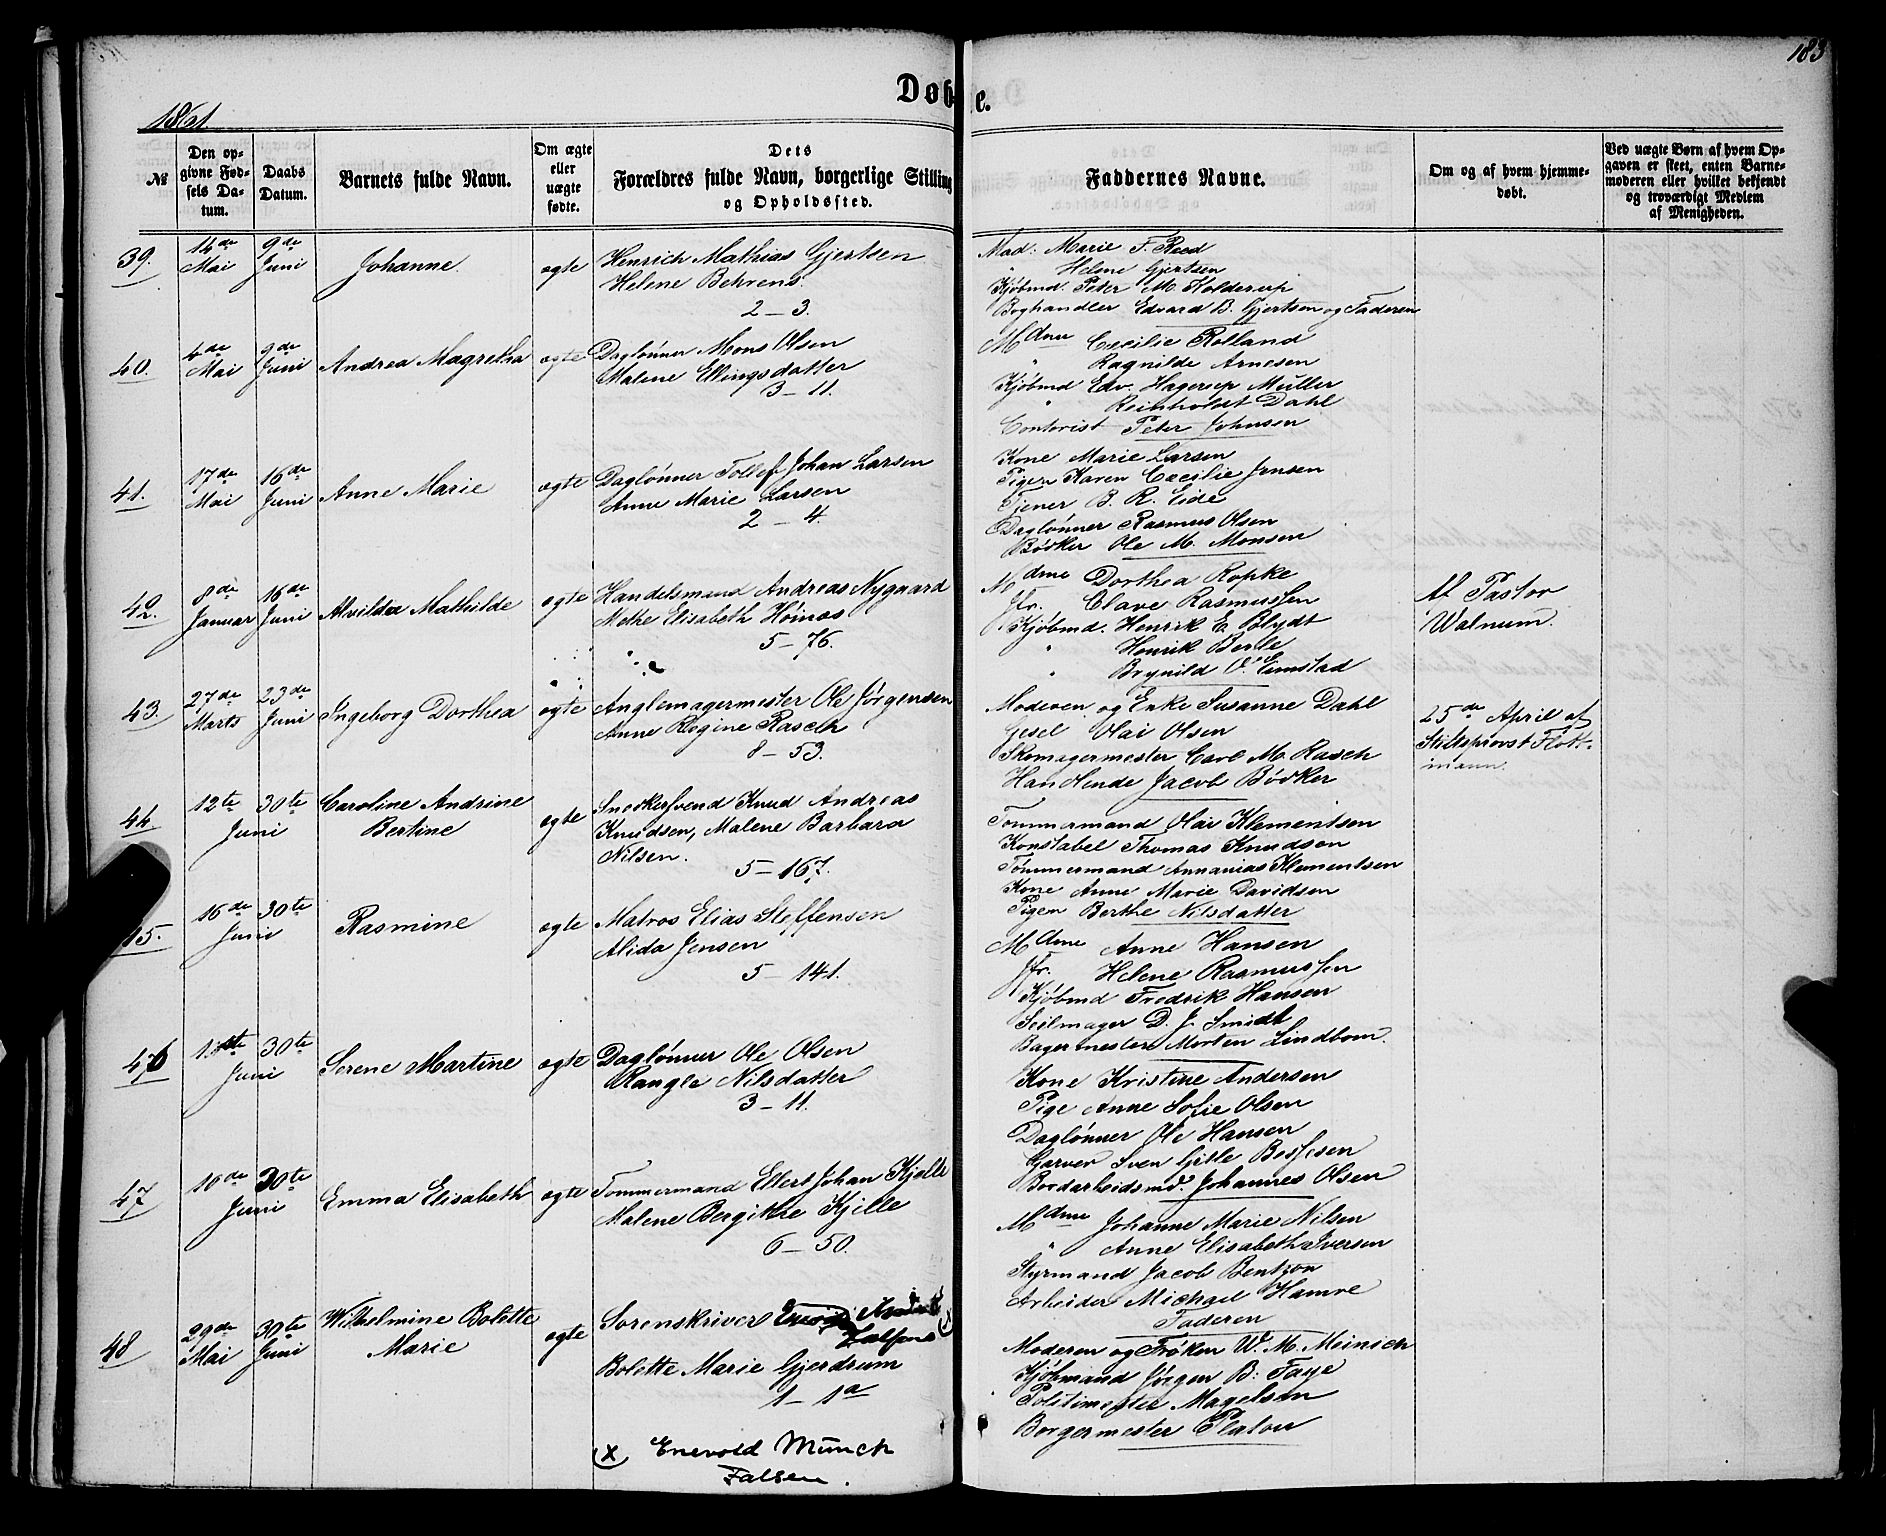 183
Døbte.
1861
№
Den opgivne Fødsels Datum.
Daabs Datum.
Barnets fulde Navn.
Om ægte eller uægte fødte.
Dets
Forældres fulde Navn, borgerlige Stilling
og Opholdssted.
Faddernes Navne.
Om og af hvem hjemmedøbt.
Ved uægte Børn af hvem Opgaven er skeet, enten Barnemoderen eller hvilket bekjendt og troværdigt Medlem af Menigheden.
39. 14de Mai 9de Juni Johanne. ægte
Henrich Mathias Gjertsen
Helene Behrens.
2 – 3.
Mad: Marie F. Reed
" Helene Gjertsen
Kjøbmd Peter M. Kolderup
Boghandler Edvard B. Gjertsen og Faderen
40. 6de Mai 9de Juni Andrea Magretha ægte
Daglønner Mons Olsen
Malene Ellingsdatter
3 – 11.
Mdme Cecilie Rolland
" Ragnilde Arnesen
Kjøbmd Edv. Hagerup Müller
" Reinholdt Dahl
Contorist Peter Johnsen
41. 17de Mai 16de Juni Anne Marie ægte
Daglønner Tollef Johan Larsen
Anne Marie Larsen
2 – 4.
Kone Marie Larsen
Pigen Karen Cecilie Jensen
Tjener B. R. Eide
Daglønner Rasmus Olsen
Bødker Ole M. Monsen
42. 8de Januar 16de Juni Alvilda Mathilde ægte
Handelsmand Andreas Nygaard
Methe Elisabeth Høinos
5 – 76.
Mdme Dorthea Ropke
Jfr. Clave Rasmussen
Kjøbmd. Henrik E. Blydt
" Henrik Berle
" Brynild O. Eunstad
Af Pastor
Walnum.
43. 27de Marts 23de Juni Ingeborg Dorthea ægte
Anglemagermester Ole Jørgensen
Anne Regine Rasch
8 – 53.
Moderen og Enke Susanne Dahl
Gesel Olai Olsen
Skomagermester Carl M. Rasch
Han Hende Jacob Bødker
25de April af
Stiftsprovst Flott-
mann.
44 12te 30te Juni Caroline Andrine
Bertine ægte
Snedkersvend Knud Andreas
Knudsen, Malene Barbara
Nilsen.
5 – 167.
Tømmermand Olai Klementsen
Konstabel Thomas Knudsen
Tømmermand Annanias Klementsen
Kone Anne Marie Davidsen
Pigen Berthe Nilsdatter
45. 16de 30te Juni Rasmine ægte
Matros Elias Steffensen
Alida Jensen
5 – 141.
Mdme Anne Hansen
Jfr. Helene Rasmussen
Kjøbmd Fredrik Hansen
Seilmager D. J. Smidt
Bagermester Morten Lindbom.
46 30te Juni Serene Martine ægte
Daglønner Ole Olsen
Rangle Nilsdatter
3 – 11.
Kone Kristine Andersen
Pige Anne Sofie Olsen
Daglønner Ole Hansen
Garver Sven Gitle Bessesen
Bordarbeidsmd. Johannes Olsen
47 16de 30te Juni Emma Elisabeth ægte
Tømmermand Ellert Johan Kjelle
Malene Bergithe Kjille
6 – 50.
Mdme Johanne Marie Nilsen
" Anne Elisabeth Iversen
Styrmand Jacob Bentzon
Arbeider Michael Hamre
Faderen
48 29de Mai 30te Juni Wilhelmine Bolette
Marie ægte
Sorenskriver
Bolette Marie Gjerdrum
1 – 1a
Moderen og Frøken W. M. Meinich
Kjøbmand Jørgen B: Faye
Politimester Magelsen
Borgermester Platou
(x Enevold Munch
Falsen.